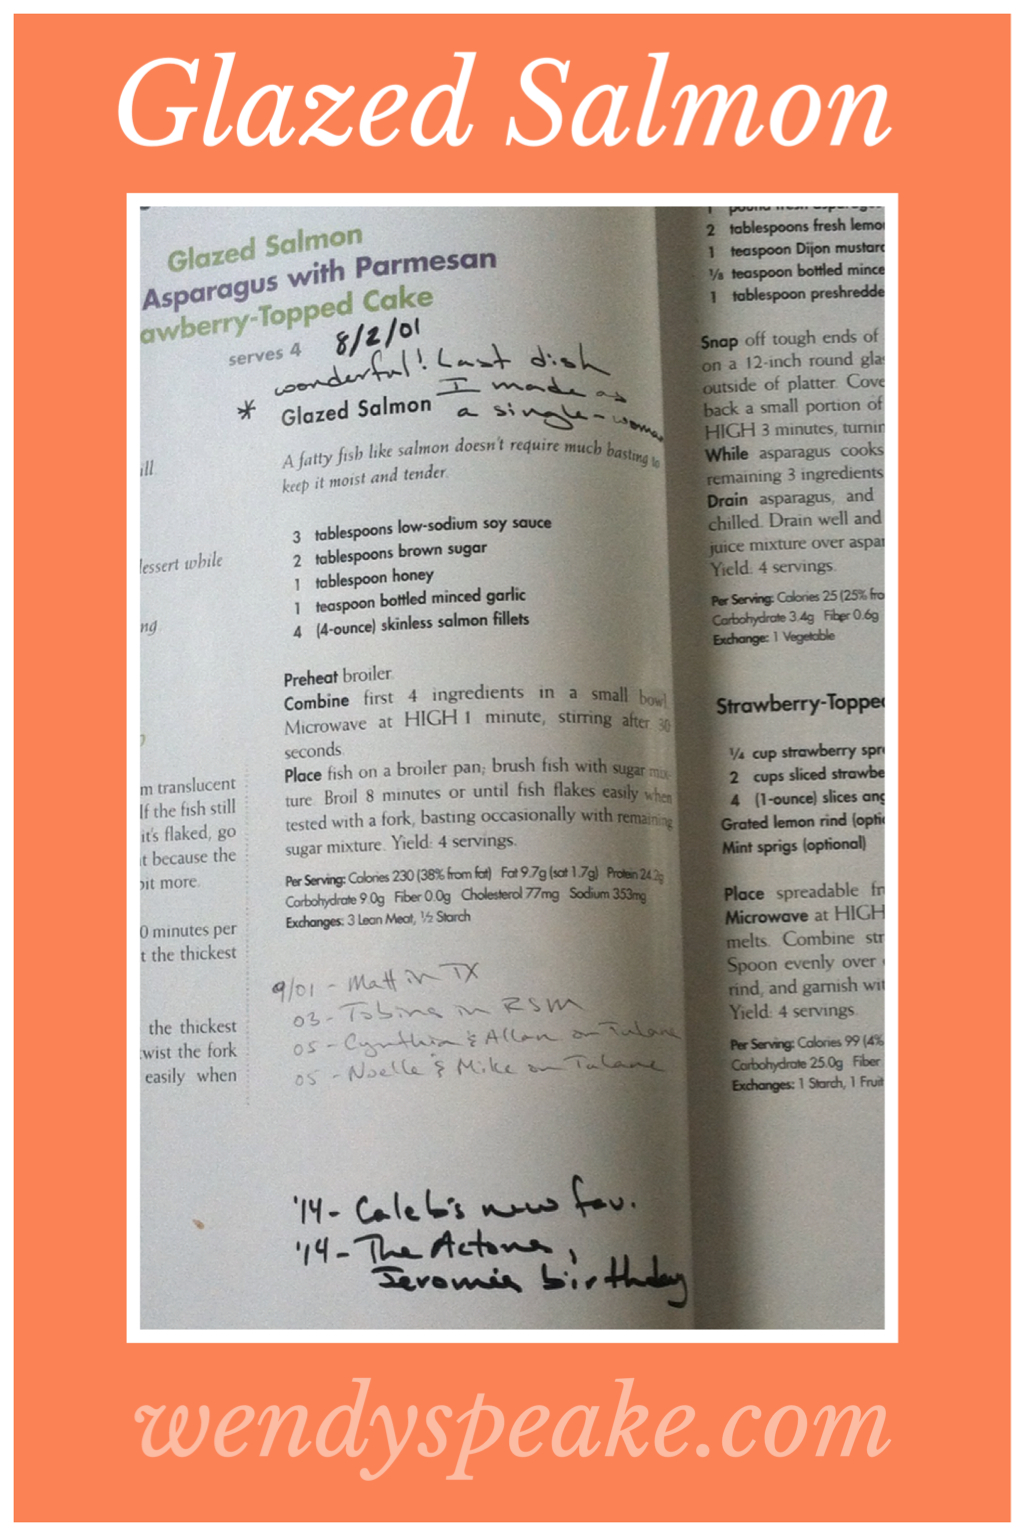 Glazed Salmon
Glazed Salmon
Asparagus with Parmesan
awberry-Topped Cake
serves 4
8/2/01
wonderful! Last dish
I made as
a single-woman
* Glazed Salmon
A fatty fish like salmon doesn't require much basting to
keep it moist and tender.
3 tablespoons low-sodium soy sauce
2 tablespoons brown sugar
1 tablespoon honey
1 teaspoon bottled minced garlic
4 (4-ounce) skinless salmon fillets
Preheat broiler.
Combine first 4 ingredients in a small bowl.
Microwave at HIGH 1 minute, stirring after 30
seconds.
Place fish on a broiler pan; brush fish with sugar mix-
ture. Broil 8 minutes or until fish flakes easily when
tested with a fork, basting occasionally with remaining
sugar mixture. Yield: 4 servings.
Per Serving: Calories 230 (38% from fat) Fat 9.7g (sat 1.7g) Protein 24.2g
Carbohydrate 9.0g Fiber 0.0g Cholesterol 77mg Sodium 353mg
Exchanges: 3 Lean Meat, ½ Starch
9/01 - Matt in TX
03 - Tobins in RSM
05 - Cynthia & Allan on Tulane
05 - Noelle & Mike on Tulane
'14 - Caleb's new fav.
'14 - The Actons,
Jeromies birthday
ill.
essert while
ng.
m translucent
If the fish still
it's flaked, go
t because the
bit more.
0 minutes per
t the thickest
the thickest
wist the fork
easily when
1 pound fresh asparagus
2 tablespoons fresh lemo
1 teaspoon Dijon mustard
⅛ teaspoon bottled mince
1 tablespoon preshredde
Snap off tough ends of
on a 12-inch round gla
outside of platter. Cove
back a small portion of
HIGH 3 minutes, turnin
While asparagus cooks
remaining 3 ingredients
Drain asparagus, and
chilled. Drain well and
juice mixture over aspar
Yield: 4 servings.
Per Serving: Calories 25 (25% fro
Carbohydrate 3.4g Fiber 0.6g
Exchange: 1 Vegetable
Strawberry-Toppe
¼ cup strawberry spr
2 cups sliced strawbe
4 (1-ounce) slices ang
Grated lemon rind (optio
Mint sprigs (optional)
Place spreadable fr
Microwave at HIGH
melts. Combine str
Spoon evenly over
rind, and garnish wit
Yield: 4 servings.
Per Serving: Calories 99 (4%
Carbohydrate 25.0g Fiber
Exchanges: 1 Starch, 1 Fruit
wendyspeake.com